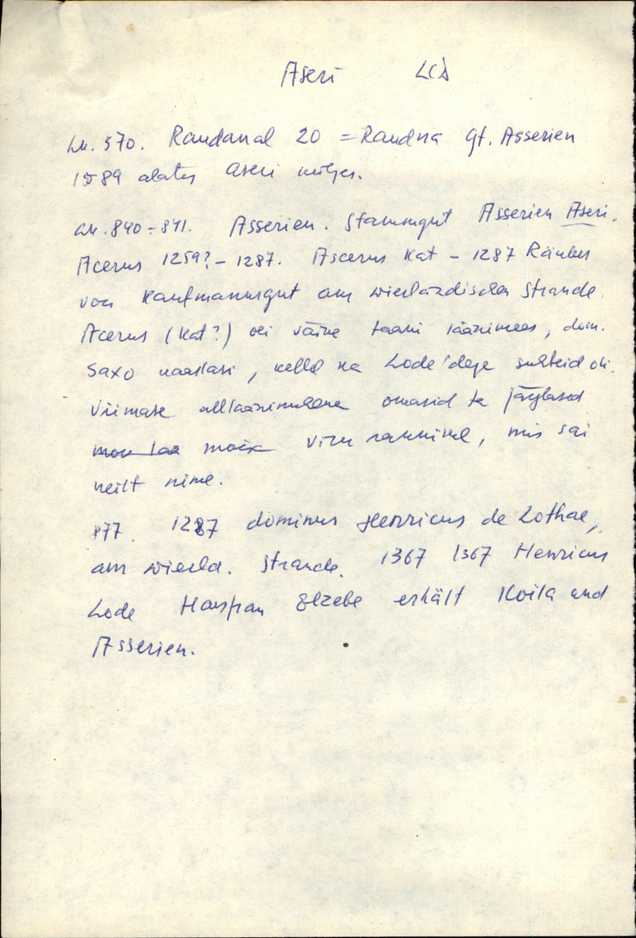 Aseri LCD
Lk. 570. Randanal 20 = Randna Gt. Asserien
1589 alates Aseri mõjes.
Lk. 840-841. Asserien. Stammgut Asserien Aseri.
Acerus 1259? - 1287. Ascerus Kat - 1287 Räuber
von Kaufmannsgut am wierländischen Strande.
Acerus (Kat?) oli väike taani läänimees, dom.
Saxo kaaslasi, kellel ka Lode'dega suhteid oli.
Viimase omasid ta järglased
viru rannikul, mis sai
neilt nime.
877. 1287 dominus Henricus de Lothae,
am wierld. Strande. 1367 1367 Henricus
Lode Hausfrau Elzebe erhält Koila und
Asserien.